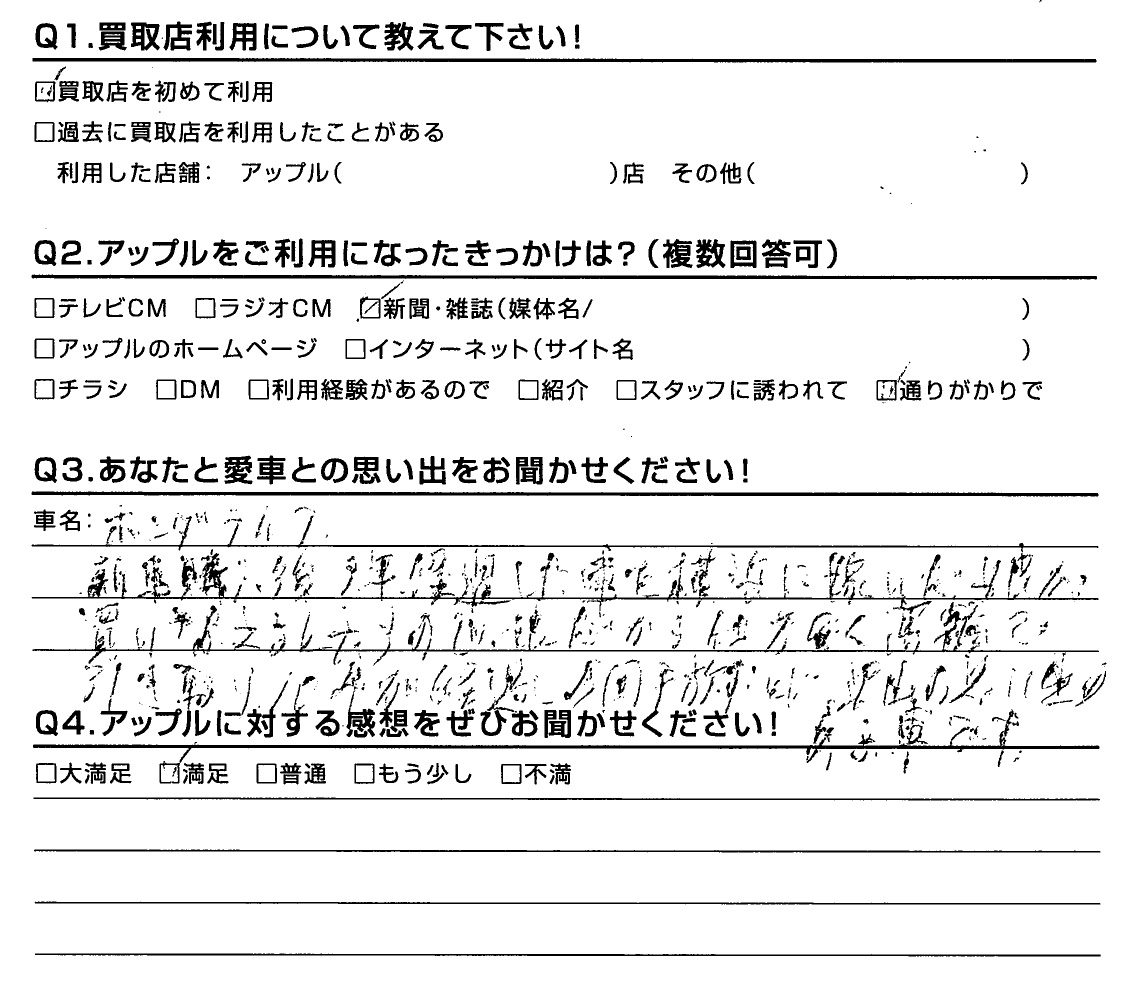 Q1.買取店利用について教えて下さい!
☑買取店を初めて利用
□過去に買取店を利用したことがある
利用した店舗: アップル( )店 その他( )
Q2.アップルをご利用になったきっかけは?(複数回答可)
□テレビCM □ラジオCM ☑新聞・雑誌(媒体名/ )
□アップルのホームページ □インターネット(サイト名 )
□チラシ □DM □利用経験があるので □紹介 □スタッフに誘われて ☑通りがかりで
Q3.あなたと愛車との思い出をお聞かせください!
車名: ホンダライフ
新車購入後 年経過した車を横浜に嫁いだ娘が
買いかえるとたのされ から仕方なく高額で
引き取り10年 経過 今回手放す
Q4.アップルに対する感想をぜひお聞かせください!
車です。
□大満足 ☑満足 □普通 □もう少し □不満